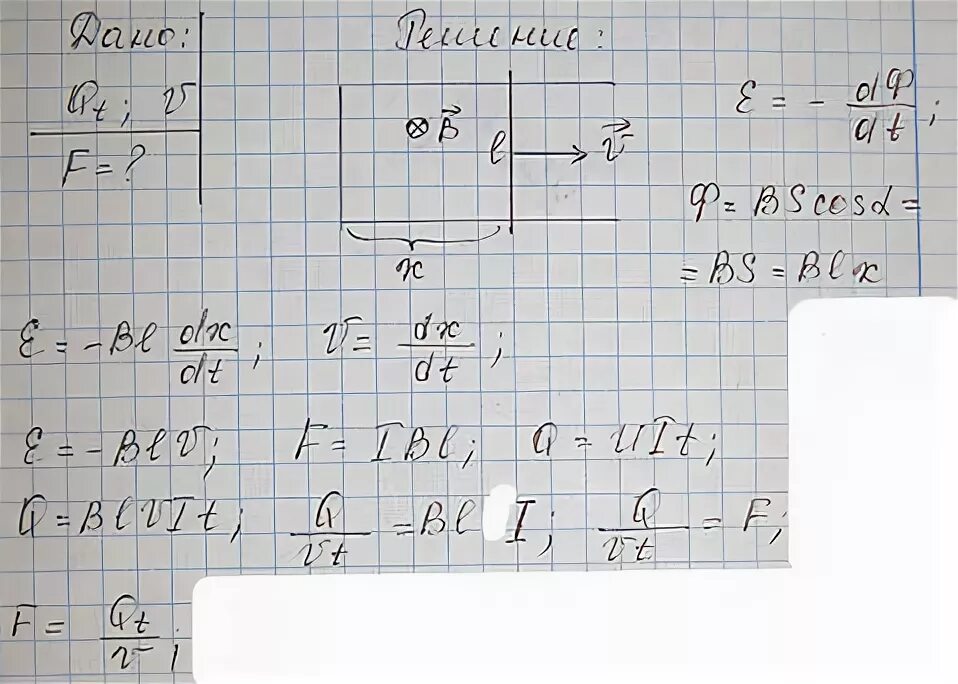 Дано:
Q_t; v
F = ?
Решение:
⊗ B⃗
l
v⃗
x
Ɛ = - dФ/dt;
Ф = BScosα =
= BS = Blx
Ɛ = -Bl dx/dt; v = dx/dt;
Ɛ = -Blv; F = IBl; Q = UIt;
Q = BlvIt; Q/vt = Bl I; Q/vt = F;
F = Q_t/v;